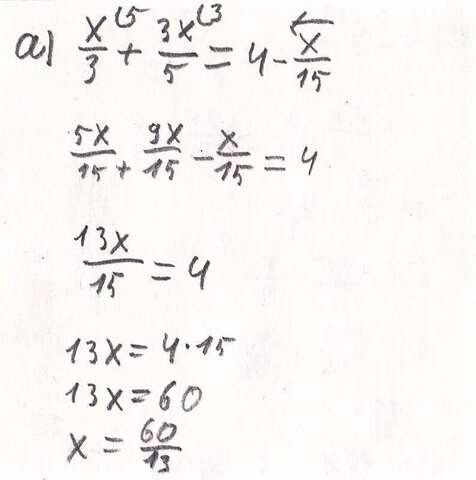 a) x/3 (5 + 3x/5 (3 = 4 - x/15
5x/15 + 9x/15 - x/15 = 4
13x/15 = 4
13x = 4·15
13x = 60
x = 60/13